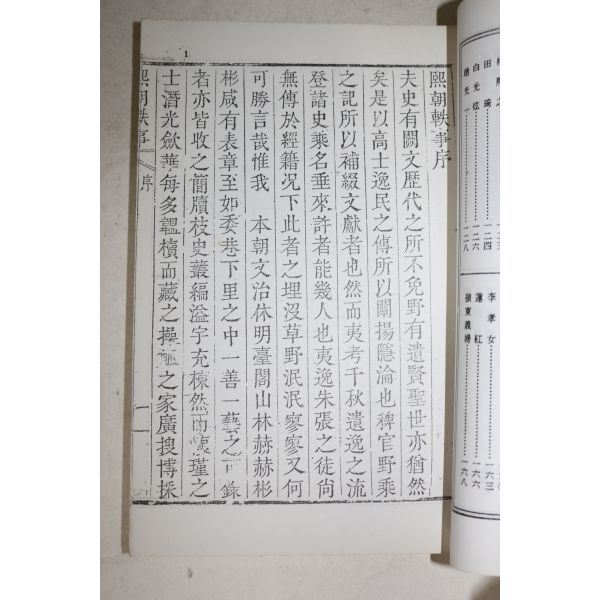 1
熙朝軼事序
夫史有闕文歷代之所不免野有遺賢聖世亦猶然
矣是以高士逸民之傳所以闡揚隱淪也稗官野乘
之記所以補綴文獻者也然而夷考千秋遺逸之流
登諸史乘名垂來許者能幾人也夷逸朱張之徒尙
無傳於經籍况下此者之埋沒草野泯泯廖廖又何
可勝言哉惟我 本朝文治休明臺閣山林赫赫彬
彬咸有表章至如委巷下里之中一善一藝之可錄
者亦皆收之簡牘枝史叢編溢宇充棟然而懷瑾之
士潛光歛華每多韞櫝而藏之操觚之家廣搜博採
熙朝軼事
序
一
田 琦 一二四
白光炫 一二六
一二八
李孝女
蓮紅 一六六
嶺東義婦 一六八